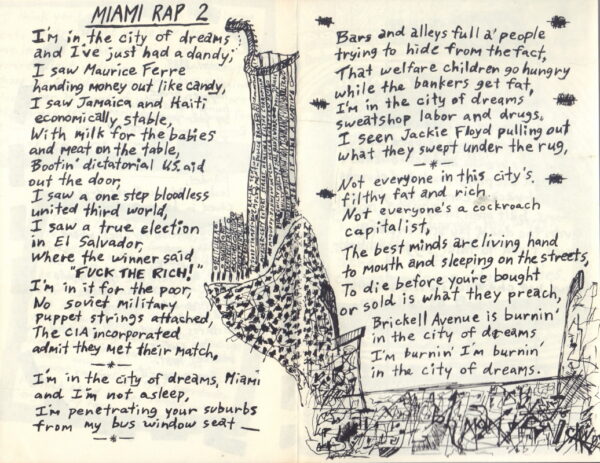 MIAMI RAP 2
I'm in the city of dreams
and I've just had a dandy;
I saw Maurice Ferre
handing money out like candy,
I saw Jamaica and Haiti
economically stable,
With milk for the babies
and meat on the table,
Bootin' dictatorial U.S. aid
out the door,
I saw a one step bloodless
united third world,
I saw a true election
in El Salvador,
Where the winner said
"FUCK THE RICH!"
I'm in it for the poor,
No soviet military
puppet strings attached,
The CIA incorporated
admit they met their match.
I'm in the city of dreams, Miami
and I'm not asleep,
I'm penetrating your suburbs
from my bus window seat —
Bars and alleys full a' people
trying to hide from the fact,
That welfare children go hungry
while the bankers get fat,
I'm in the city of dreams
sweatshop labor and drugs.
I seen Jackie Floyd pulling out
what they swept under the rug,
Not everyone in this city's
filthy fat and rich.
Not everyone's a cockroach
capitalist,
The best minds are living hand
to mouth and sleeping on the streets,
To die before you're bought
or sold is what they preach,
Brickell Avenue is burnin'
in the city of dreams
I'm burnin' I'm burnin'
in the city of dreams.